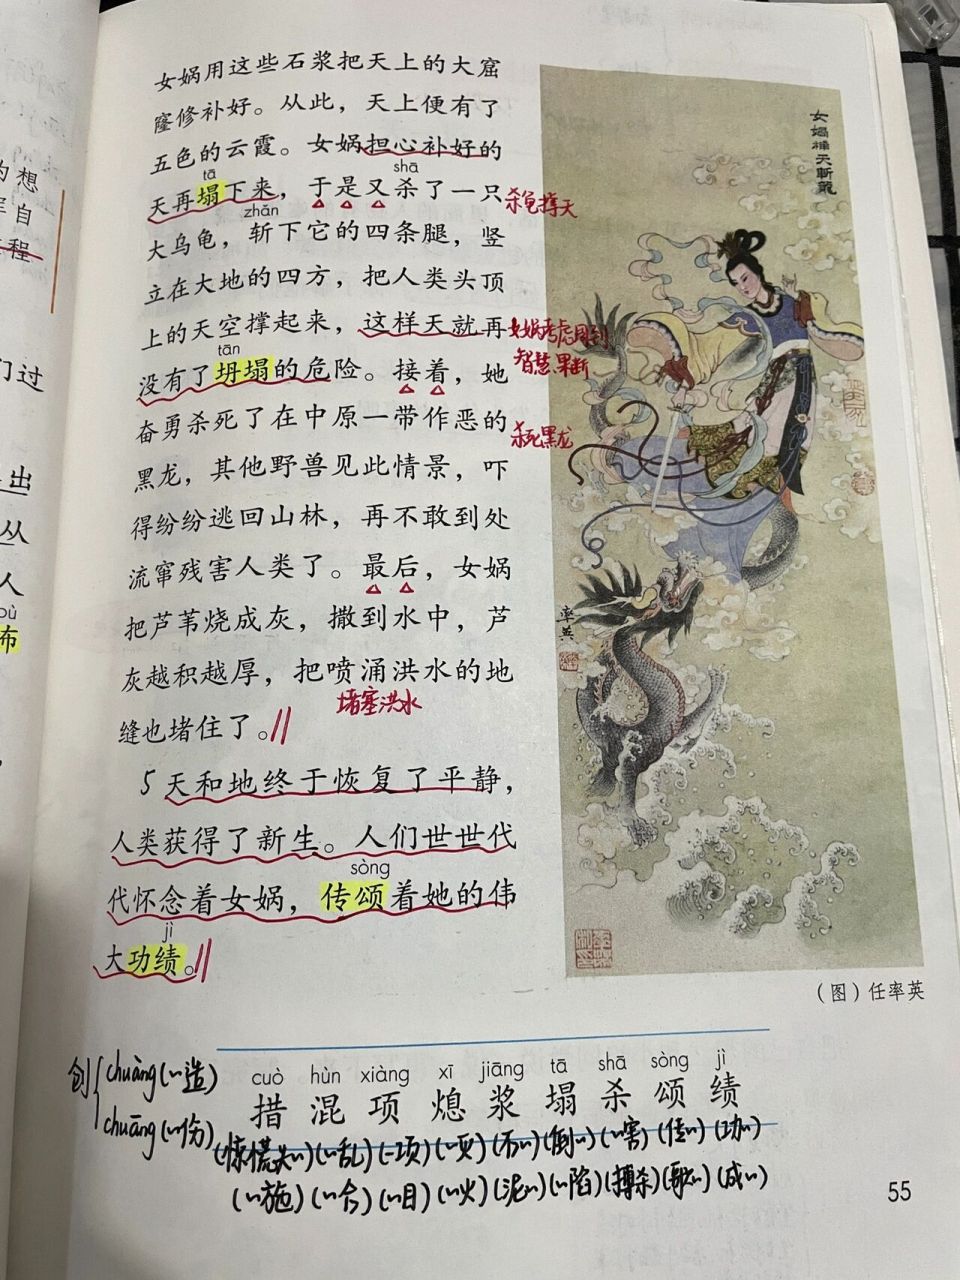 女娲用这些石浆把天上的大窟
窿修补好。从此，天上便有了
五色的云霞。女娲担心补好的
tā shā
天再塌下来，于是又杀了一只
杀龟撑天
zhǎn
大乌龟，斩下它的四条腿，竖
立在大地的四方，把人类头顶
上的天空撑起来，这样天就再
女娲考虑周到
智慧、果断
tān
没有了坍塌的危险。接着，她
奋勇杀死了在中原一带作恶的
杀死黑龙
黑龙，其他野兽见此情景，吓
得纷纷逃回山林，再不敢到处
流窜残害人类了。最后，女娲
把芦苇烧成灰，撒到水中，芦
灰越积越厚，把喷涌洪水的地
堵塞洪水
缝也堵住了。
5 天和地终于恢复了平静，
人类获得了新生。人们世世代
sòng
代怀念着女娲，传颂着她的伟
jì
大功绩。
女娲神天斩龙
率英
（图）任率英
创
chuàng(~造)
chuāng(~伤)
cuò hùn xiàng xī jiāng tā shā sòng jì
措 混 项 熄 浆 塌 杀 颂 绩
(惊慌失~)(~乱)(一项)(~灭)(石~)(倒~)(~害)(传~)(功~)
(~施)(~合)(~目)(~火)(泥~)(~陷)(搏杀)(歌~)(成~)
55
想
自
程
们过
出
丛
人
布